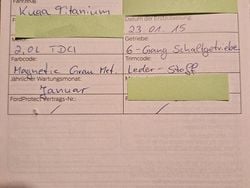 Fahrzeug:
Kuga Titanium
Datum der Erstzulassung:
23.01.15
Getriebe:
2,0L TDCI
6-Gang Schaltgetriebe
Farbcode:
Trimcode:
Magnetic Grau Met.
Leder-Stoff
Jährlicher Wartungsmonat:
Januar
FordProtect Vertrags-Nr.: